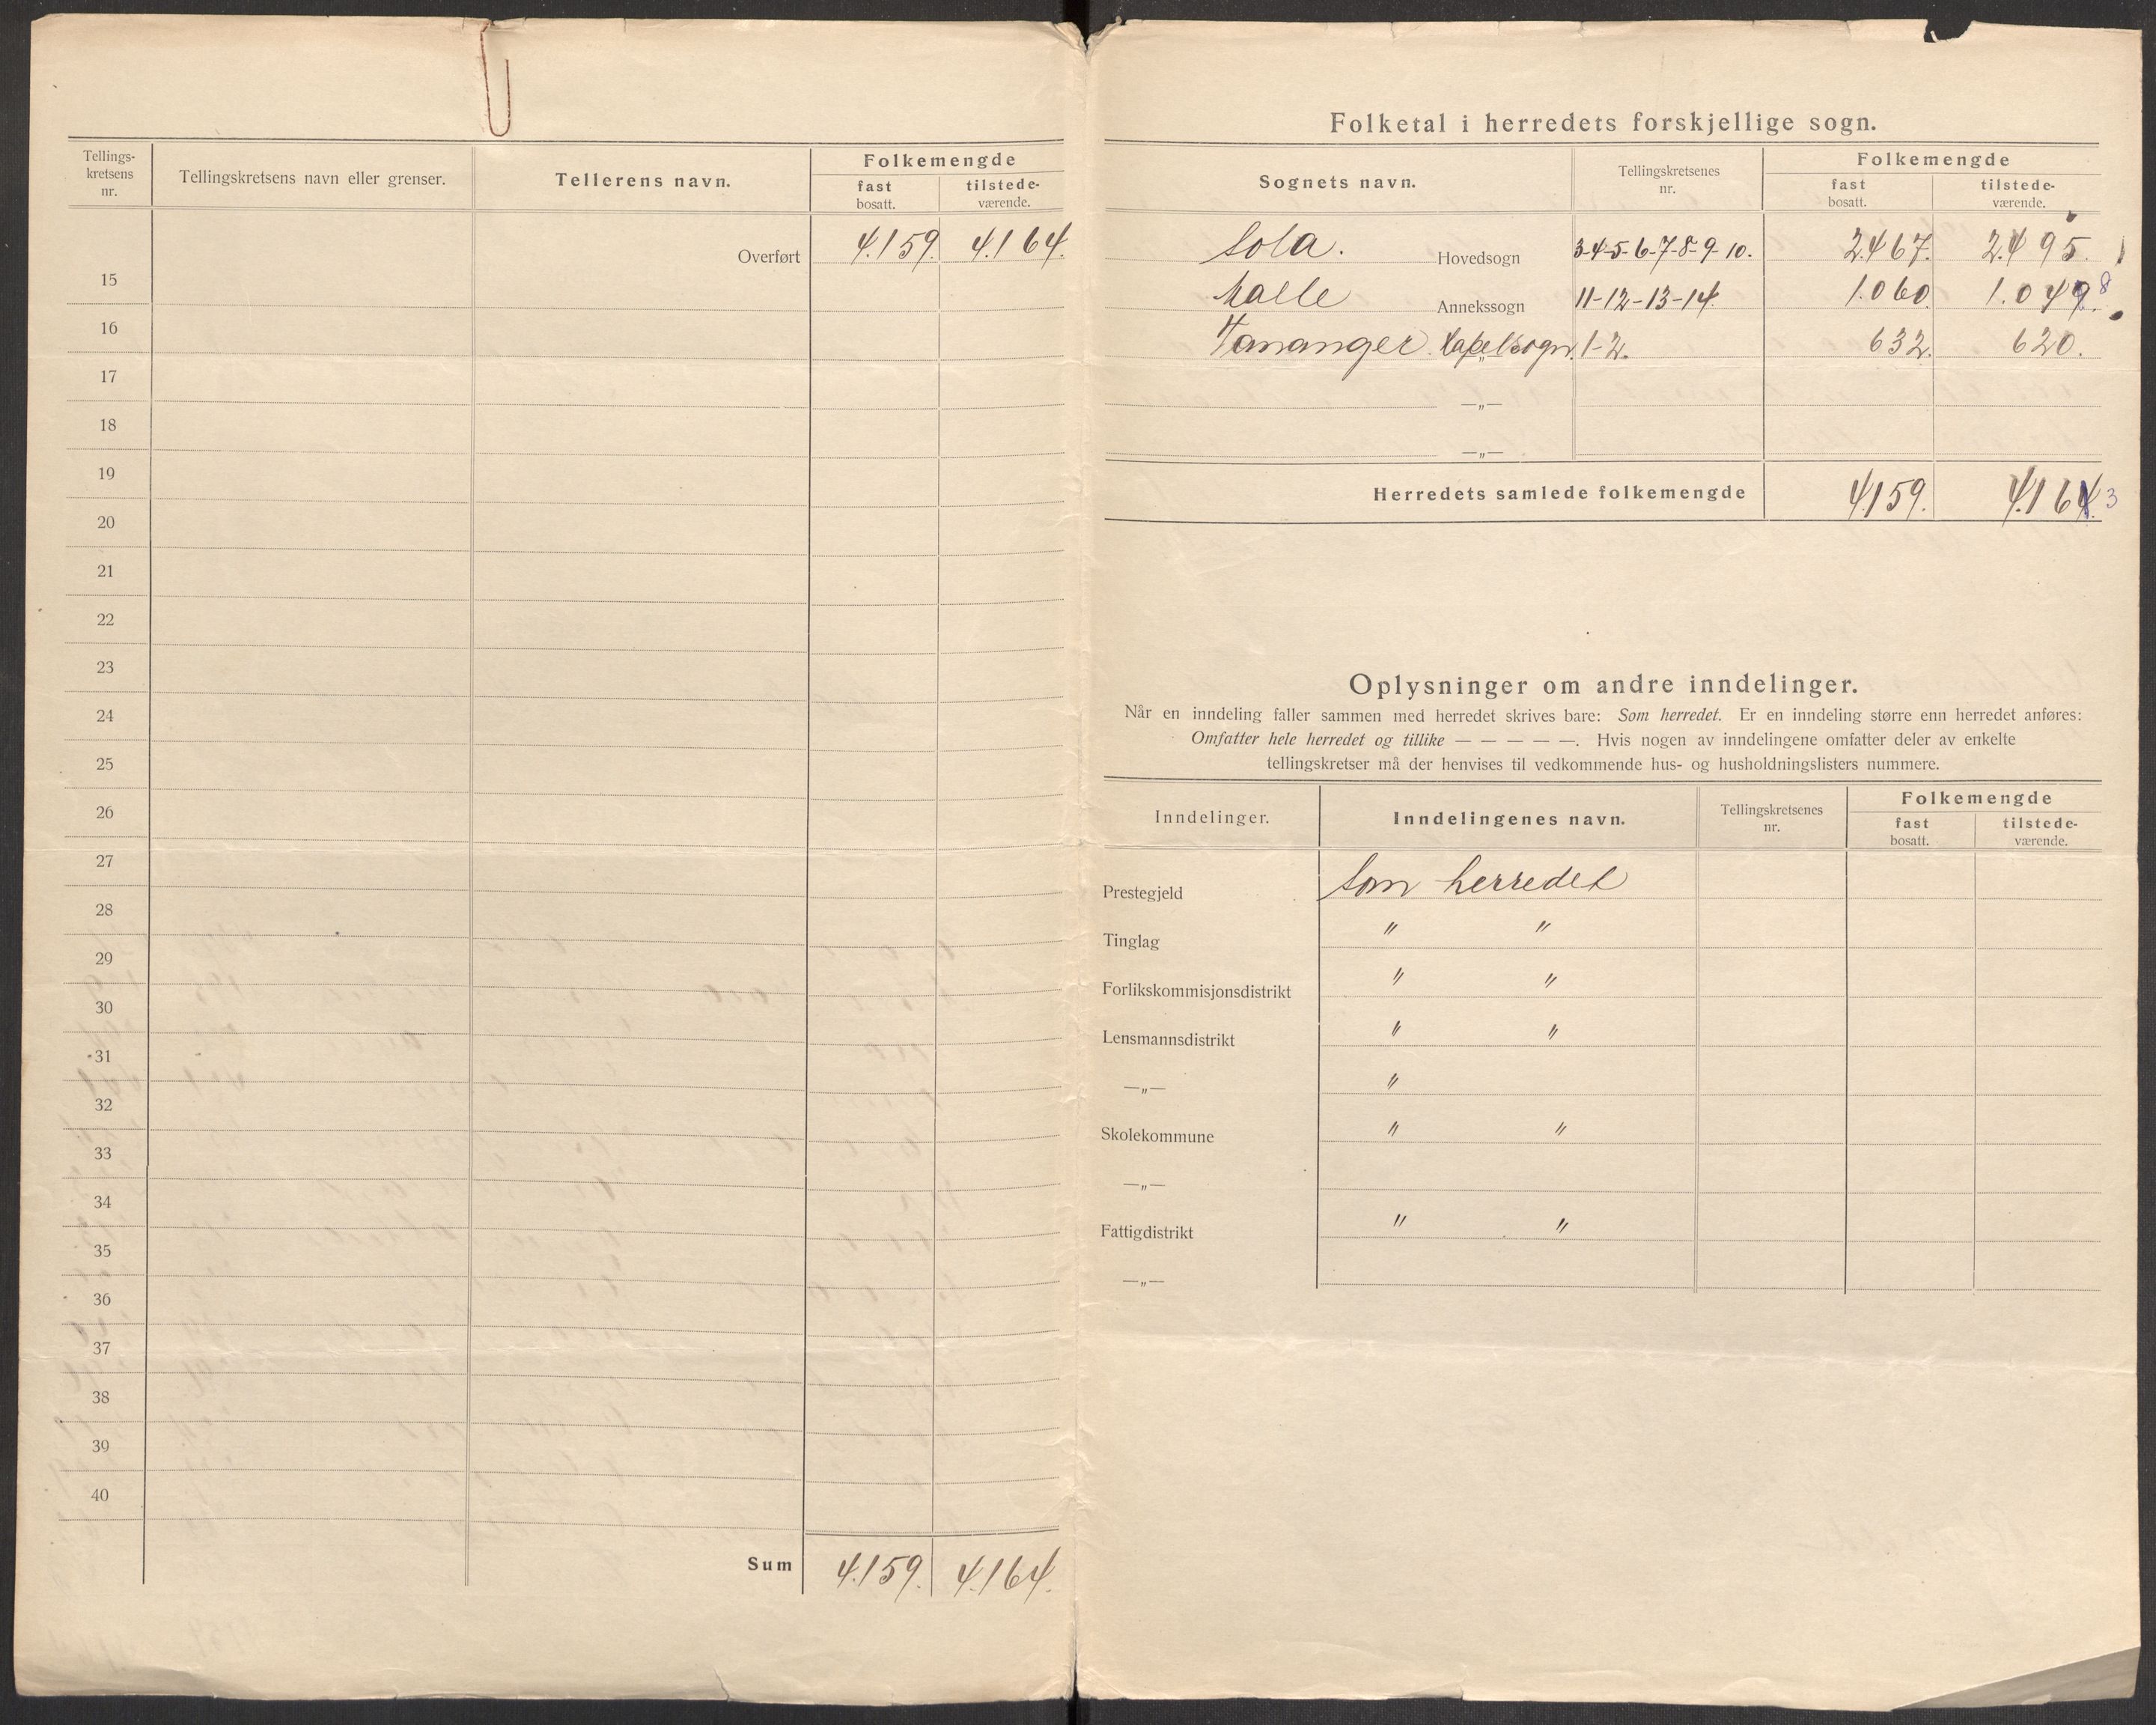 Tellings-
kretsens
nr.
Tellingskretsens navn eller grenser.
Tellerens navn.
Folkemengde
fast
bosatt.
tilstede-
værende.
Overført 4.159. 4.164.
15
16
17
18
19
20
21
22
23
24
25
26
27
28
29
30
31
32
33
34
35
36
37
38
39
40
Sum 4.159. 4.164.
Folketal i herredets forskjellige sogn.
Sognets navn.
Tellingskretsenes
nr.
Folkemengde
fast
bosatt.
tilstede-
værende.
Sola. Hovedsogn 3-4-5-6-7-8-9-10. 2.467. 2.495.
Malle Annekssogn 11-12-13-14. 1.060. 1.049. 8
Tananger Kapelsogn. 1-2. 632. 620.
—„—
—„—
Herredets samlede folkemengde 4.159. 4.164. 3
Oplysninger om andre inndelinger.
Når en inndeling faller sammen med herredet skrives bare: Som herredet. Er en inndeling større enn herredet anføres:
Omfatter hele herredet og tillike — — — — —. Hvis nogen av inndelingene omfatter deler av enkelte
tellingskretser må der henvises til vedkommende hus- og husholdningslisters nummere.
Inndelinger.
Inndelingenes navn.
Tellingskretsenes
nr.
Folkemengde
fast
bosatt.
tilstede-
værende.
Prestegjeld Som herredet
Tinglag " "
Forlikskommisjonsdistrikt " "
Lensmannsdistrikt " "
—„— "
Skolekommune " "
—„—
Fattigdistrikt " "
—„—